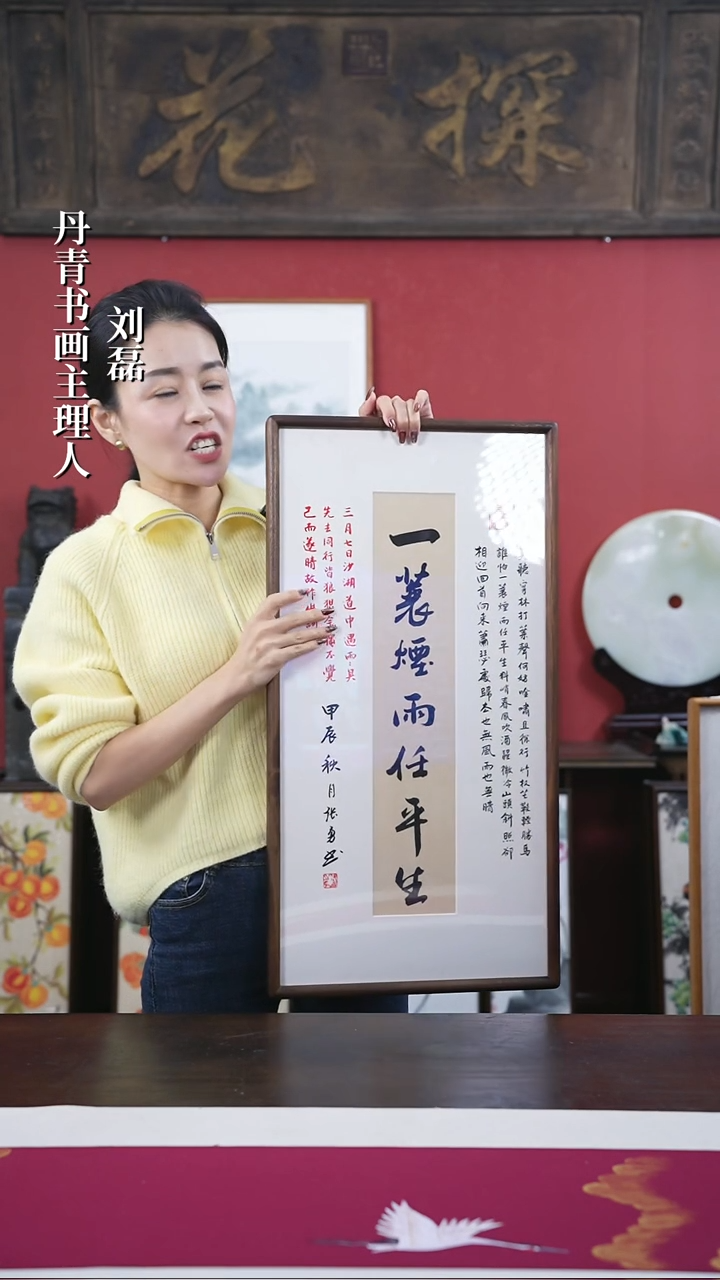 探花
丹青书画主理人
刘磊
聽穿林打葉聲何妨吟嘯且徐行竹杖芒鞋輕勝馬
誰怕一蓑煙雨任平生料峭春風吹酒醒微冷山頭斜照却
相迎回首向来蕭瑟處歸去也無風雨也無晴
一蓑煙雨任平生
三月七日沙湖道中遇雨〻具
先去同行皆狼狽余獨不覺
已而遂晴故作此
甲辰秋月张勇书